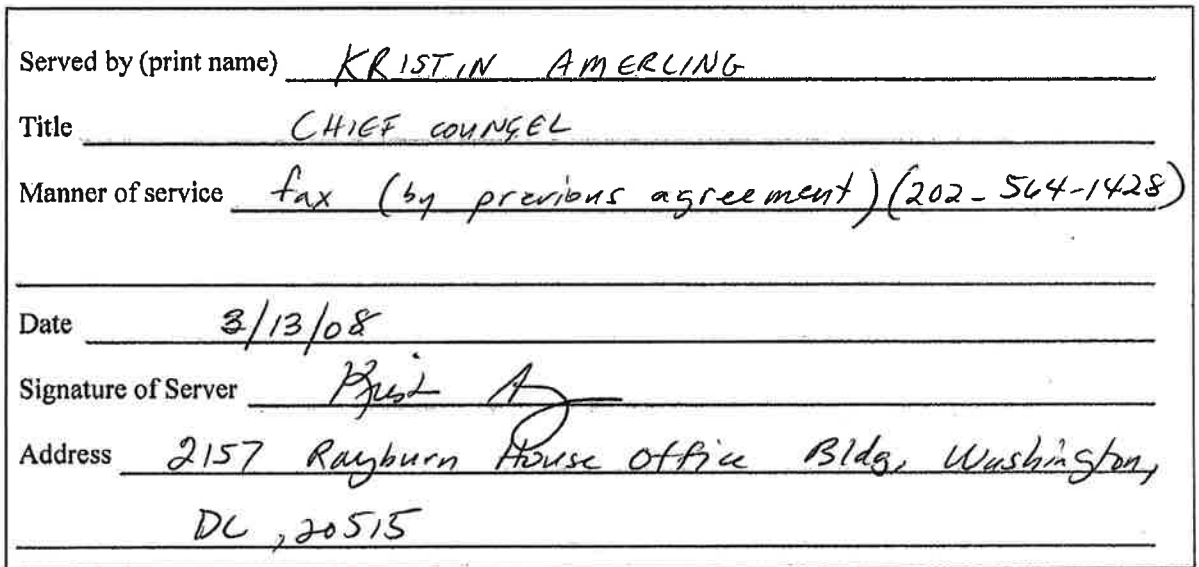 Served by (print name) KRISTIN AMERLING
Title CHIEF COUNSEL
Manner of service fax (by previous agreement) (202-564-1428)
Date 3/13/08
Signature of Server
Address 2157 Rayburn House Office Bldg, Washington,
DC, 20515